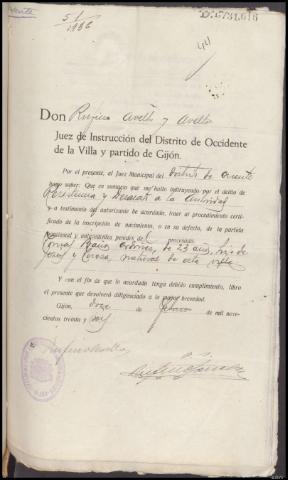 51
1936
44
Don Rufino Avello y Avello
Juez de Instrucción del Distrito de Occidente
de la Villa y partido de Gijón.
Por el presente, al Juez Municipal del Distrito de Oriente
hago saber: Que en sumario que me hallo instruyendo por el delito de
Resistencia y Desacato a la Autoridad
y a testimonio del autorizante he acordado, traer al procedimiento certifi-
cado de la inscripción de nacimiento, o en su defecto, de la partida
bautismal y antecedentes penales del procesado
de 23 años, hijo de
José y Teresa, natural de esta villa
Y con el fin de que lo acordado tenga debido cumplimiento, libro
el presente que devolverá diligenciado a la mayor brevedad.
Gijón, doce de Febrero de mil nove-
cientos treinta y seis
Rufino Avello